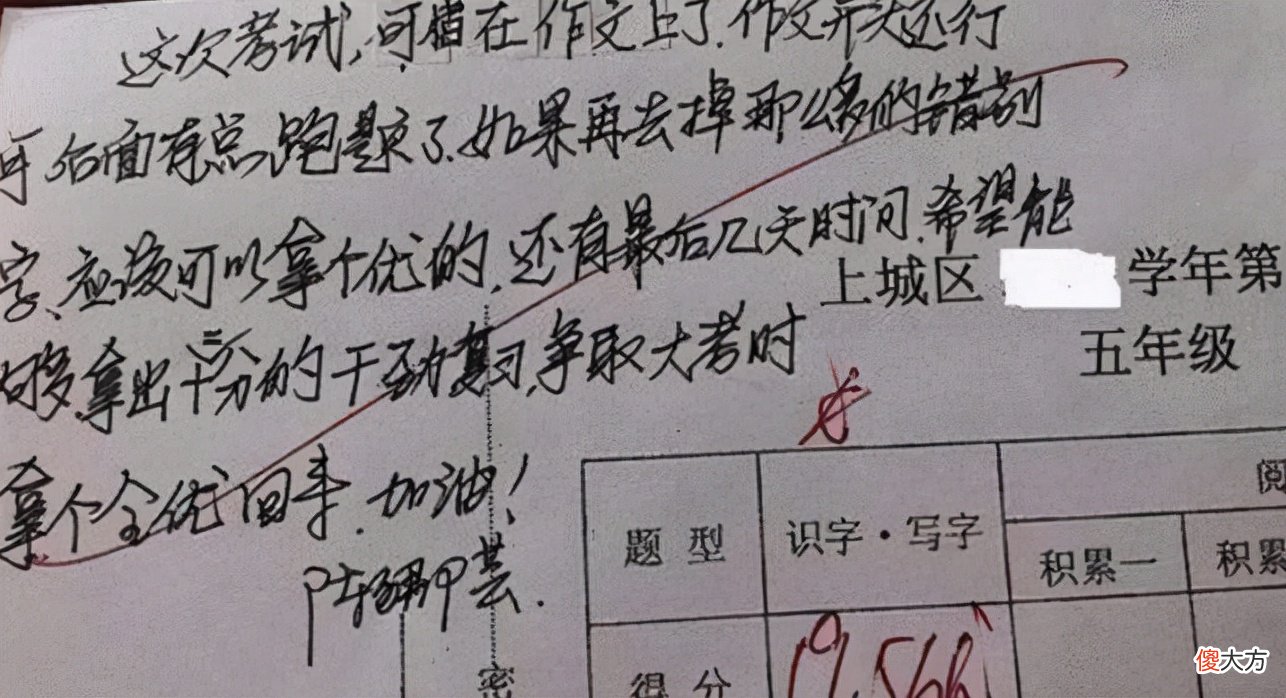 这次考试,可惜在作文上了.作文开头还行
后面有点跑题了.如果再去掉那么多的错别
字、应该可以拿个优的.还有最后几天时间.希望能
够拿出十二分的干劲复习,争取大考时
拿个全优回来.加油!
上城区 学年第
五年级
题 型
识字·写字
阅
积累一
积累
得 分
密
傻大方